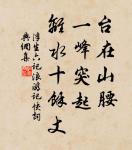 台在山腰
一峰突起
離水十餘丈
浮生六記浪游記快詞
典網集